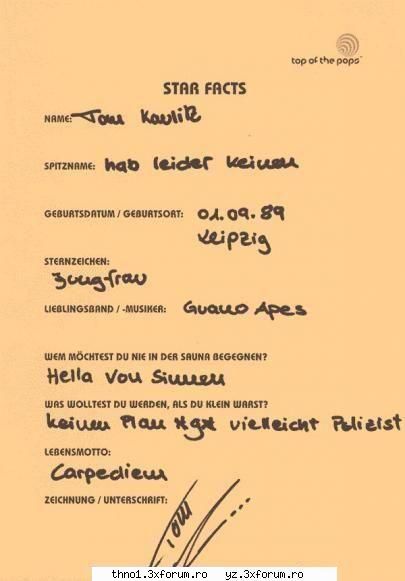 top of the pops™
STAR FACTS
NAME: Tom Kaulitz
SPITZNAME: hab leider keinen
GEBURTSDATUM / GEBURTSORT: 01.09.89
Leipzig
STERNZEICHEN:
Jungfrau
LIEBLINGSBAND / -MUSIKER: Guano Apes
WEM MÖCHTEST DU NIE IN DER SAUNA BEGEGNEN?
Hella von Sinnen
WAS WOLLTEST DU WERDEN, ALS DU KLEIN WARST?
keinen Plan vielleicht Polizist
LEBENSMOTTO:
Carpediem
ZEICHNUNG / UNTERSCHRIFT:
Tom
thno1.3xforum.ro yz.3xforum.ro